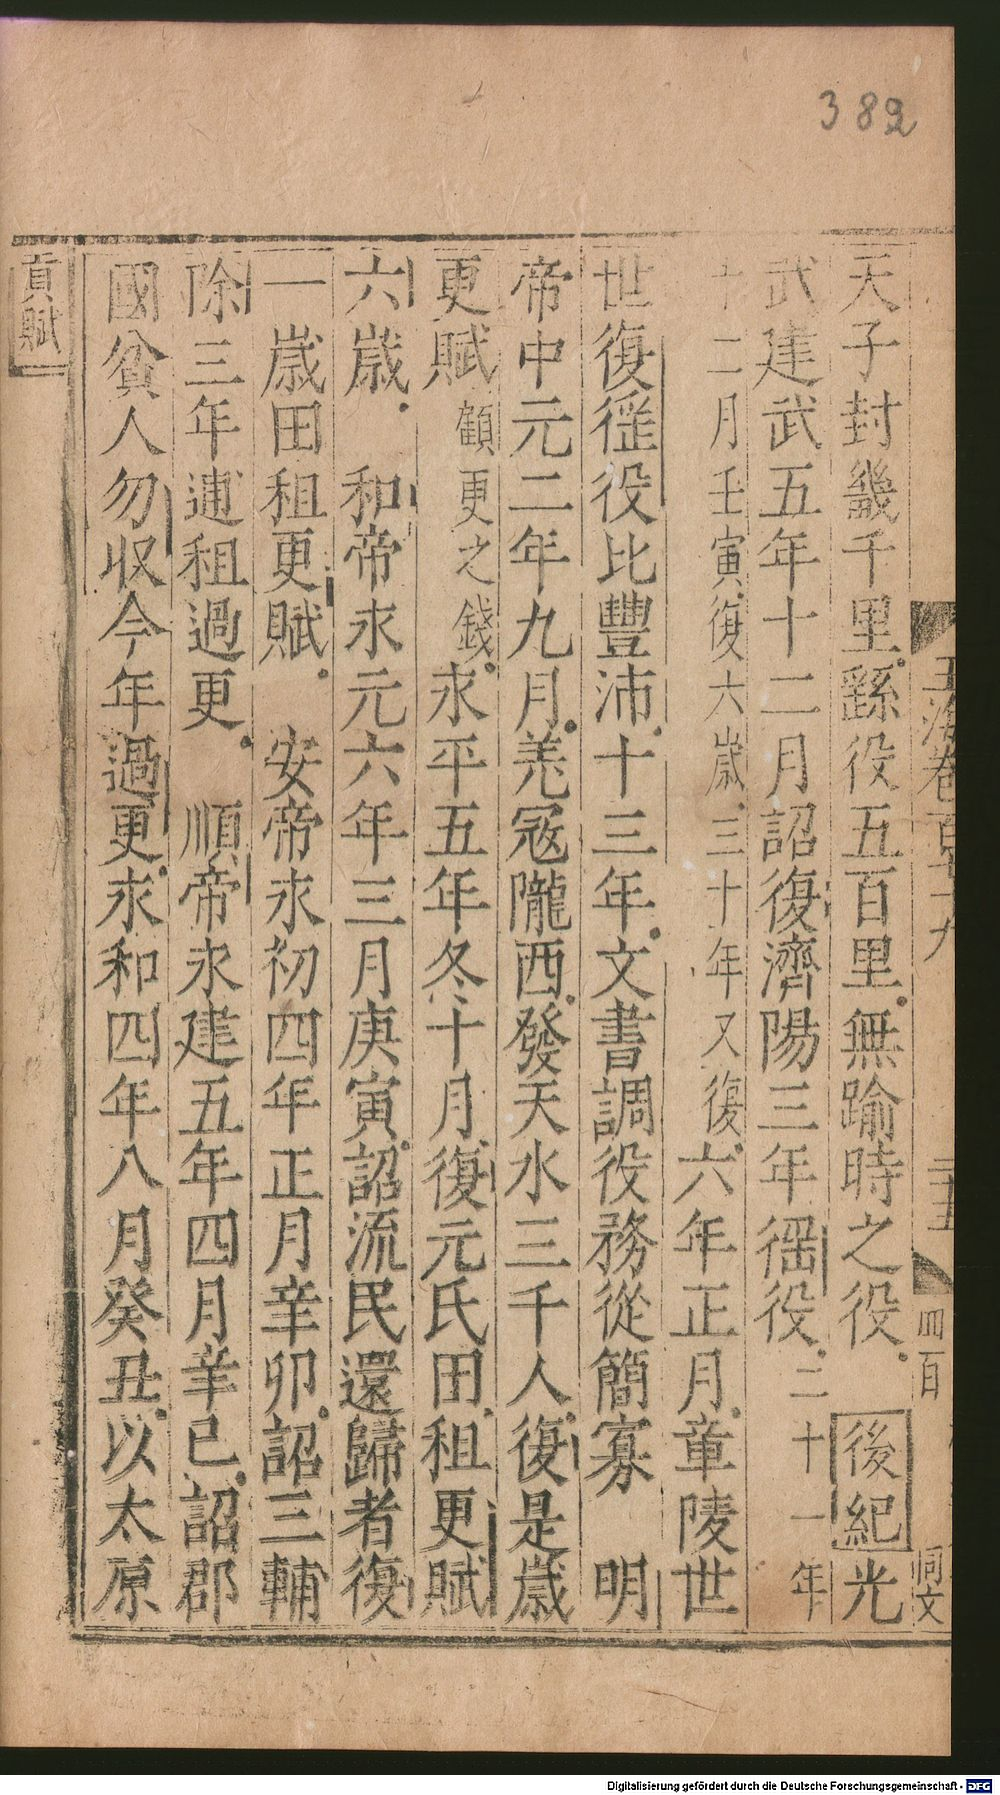 382
天子封畿千里繇役五百里無踰時之役後紀光
武建武五年十二月詔復濟陽三年徭役二十一年
十二月壬寅復六歳三十年又復六年正月章陵世
世復徭役比豐沛十三年文書調役務從簡寡　明
帝中元二年九月羗冦隴西發天水三千人復是歳
更賦顧更之錢永平五年冬十月復元氏田租更賦
六歳　和帝永元六年三月庚寅詔流民還歸者復
一歳田租更賦　安帝永初四年正月辛卯詔三輔
除三年逋租過更　順帝永建五年四月辛巳詔郡
國貧人勿収今年過更永和四年八月癸丑以太原
貢賦
玉海卷百
二十五
四百
Digitalisierung gefördert durch die Deutsche Forschungsgemeinschaft - DFG